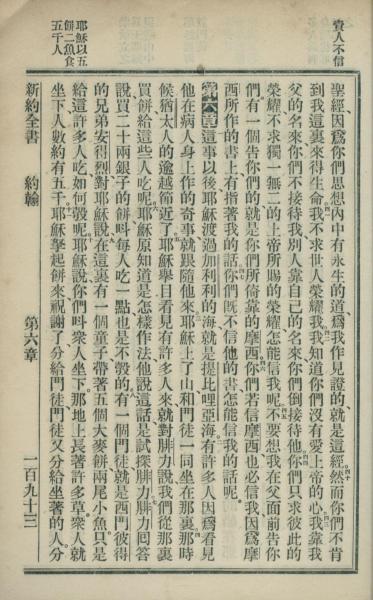 責人不信
聖經因爲你們思想內中有永生的道爲我作見證的就是這經然而你們不肯
到我這裏來得生命我不求世人榮耀我我知道你們沒有愛上帝的心我靠我
父的名來你們不接待我別人靠自己的名來你們倒接待他你們只求彼此的
榮耀不求獨一無二的上帝所賜的榮耀怎能信我呢不要想我在父面前告你
們有一個告你們的就是你們所倚靠的摩西你們若信摩西也必信我因爲摩
西所作的書上有指著我的話你們既不信他的書怎能信我的話呢
第六章這事以後耶穌渡過加利利的海就是提比哩亞海有許多人因爲看見
他在病人身上作的奇事就跟隨他來耶穌上了山和門徒一同坐在那裏那時
候猶太人的逾越節近了耶穌舉目看見有許多人來就對腓力說我們從那裏
買餅給這些人吃呢耶穌原知道是怎樣作法他說這話是試探腓力腓力回答
說買二十兩銀子的餅呌每人吃一點也是不彀的有一個門徒就是西門彼得
的兄弟安得烈對耶穌說在這裏有一個童子帶著五個大麥餅兩尾小魚只是
給這許多人吃如何彀呢耶穌說你們呌衆人坐下那地上長著許多草衆人就
坐下人數約有五千耶穌拏起餅來祝謝了分給門徒門徒又分給坐著的人分
耶穌以五
餅二魚食
五千人
新約全書
約翰
第六章
一百九十三